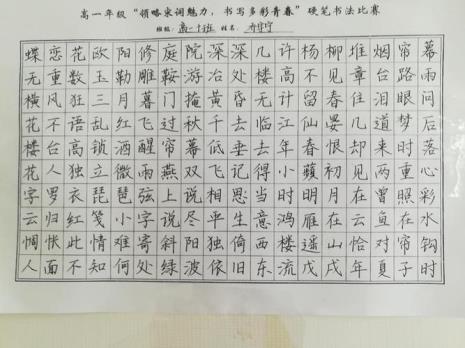 高一年级“领略宋词魅力，书写多彩青春”硬笔书法比赛
班级：高一十班 姓名：
蝶恋花欧阳修庭院深深几许杨柳堆烟帘幕
无重数玉勒雕鞍游冶处楼高不见章台路雨
横风狂三月暮门掩黄昏无计留春住泪眼问
花不语乱红飞过秋千去临江仙晏几道梦后
楼台高锁酒醒帘幕低垂去年春恨却来时落
花人独立微雨燕双飞记得小蘋初见两重心
字罗衣琵琶弦上说相思当时明月在曾照彩
云归红笺小字说尽平生意鸿雁在云鱼在水
惆怅此情难寄斜阳独倚西楼遥山恰对帘钩
人面不知何处绿波依旧东流戊戌年夏子时